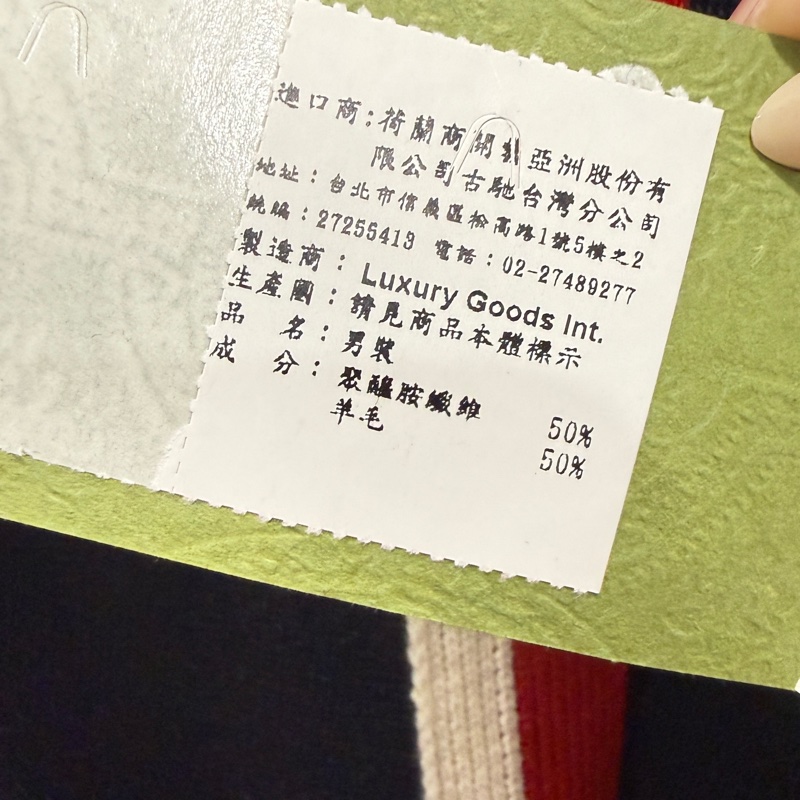 進口商:荷蘭商 亞洲股份有
限公司古馳台灣分公司
地址:台北市信義區松高路1號5樓之2
統編:27255413 電話:02-27489277
製造商:Luxury Goods Int.
生產國:請見商品本體標示
品 名:男裝
成 分:聚醯胺纖維 50%
羊毛 50%